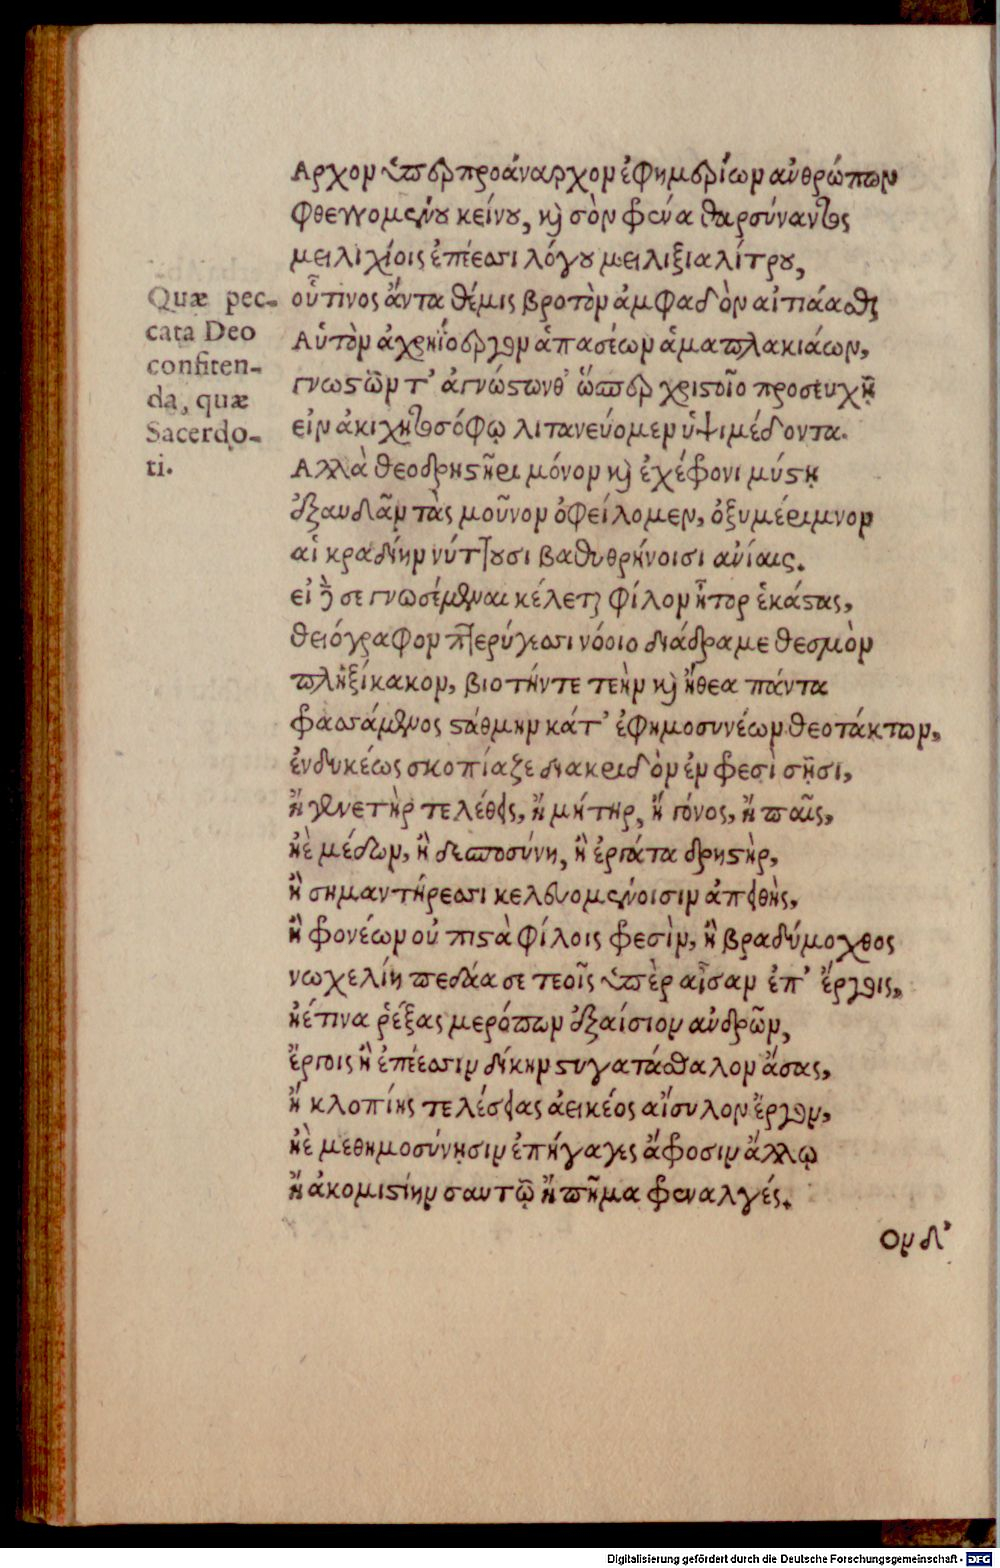 Αρχον ὑπερπροάναρχον ἐφημερίων ἀνθρώπων
φθεγγομένου κείνου, καὶ σὸν φρένα θαρσύναντος
μειλιχίοις ἐπέεσσι λόγου μειλιξιαλίτρου,
Quæ pec-
cata Deo
confiten-
da, quæ
Sacerdo-
ti.
οὗτινος ἄντα θέμις βροτὸν ἀμφαδὸν αἰτιάασθαι
Αὑτὸν ἀχρηΐοεργον ἁπασέων ἀμαπλακιάων,
γνωστῶν τ' ἀγνώστωνθ' ὥσπερ χριστοῖο προσευχῇ
εἰν ἀκιχητοσόφῳ λιτανεύομεν ὑψιμέδοντα.
Αλλὰ θεοδρηστῆρι μόνον καὶ ἐχέφρονι μύστῃ
ἐξαυδᾶν τὰς μοῦνον ὀφείλομεν, ὀξυμέριμνον
αἳ κραδίην νύττουσι βαθυθρήνοισι ἀνίαις.
εἰ δὲ σε γνωσέμεναι κέλεται φίλον ἦτορ ἑκάστας,
θειόγραφον πτερύγεσσι νόοιο διάδραμε θεσμὸν
πληξίκακον, βιοτήντε τεὴν καὶ ἤθεα πάντα
φρασσάμενος στάθμην κάτ' ἐφημοσυνέων θεοτάκτων,
ἐνδυκέως σκοπίαζε διακριδὸν ἐν φρεσὶ σῇσι,
ἢ γενετὴρ τελέθεις, ἢ μήτηρ, ἢ γόνος, ἢ παῖς,
ἠὲ μέδων, ἢ δεσποσύνη, ἢ ἐργάτα δρηστὴρ,
ἢ σημαντήρεσσι κελευομένοισιν ἀπειθὴς,
ἢ φρονέων οὐ πιστὰ φίλοις φρεσὶν, ἢ βραδύμοχθος
νωχελίη πεδάα σε τεοῖς ὑπὲρ αἶσαν ἐπ' ἔργοις,
ἠέ τινα ῥέξας μερόπων ἐξαίσιον ἀνδρῶν,
ἔργοις ἢ ἐπέεσσιν δίκην στυγατάσθαλον ἄσας,
ἢ κλοπίης τελέσεας ἀεικέος αἴσυλον ἔργον,
ἠὲ μεθημοσύνῃσιν ἐπήγαγες ἄφροσιν ἄλλῳ
ἢ ἀκομιστίην σαυτῷ ἢ πῆμα φρεναλγές.
Ον δ'
Digitalisierung gefördert durch die Deutsche Forschungsgemeinschaft - DFG